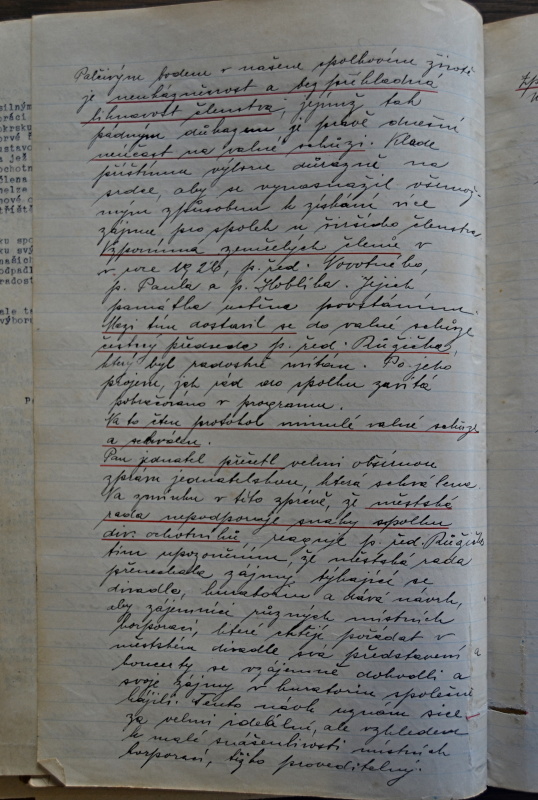 Palčivým bodem v našem spolkovém životě
je nevšímavost a bez příkladná
liknavost členstva, jejímž tak
pádným důkazem je právě dnešní
neúčast na valné schůzi. Klade
příštímu výboru důrazně na
srdce, aby se vynasnažil všemož-
ným způsobem k získání více
zájmu pro spolek u širšího členstva
Vzpomíná zemřelých členů v
v roce 1926, p. řed. Novotného,
p. Paula a p. Hoblíka. Jejich
památka uctěna povstáním.
Mezi tím dostavil se do valné schůze
čestný předseda p. řed. Růžička,
který byl radostně uvítán. Po jeho
projevu, jak rád do spolku zavítá
pokračováno v programu.
Na to čten protokol minulé valné schůze
a schválen.
Pan jednatel přečetl velmi obšírnou
zprávu jednatelskou, která schválena.
Na zmínku v této zprávě, že městská
rada nepodporuje snahy spolku
div. ochotníků, reaguje p. řed. Růžička
tím upozorněním, že městská rada
přenechala zájmy, týkající se
divadla, kuratoriu a dává návrh,
aby zájemníci různých místních
korporací, které chtějí pořádat v
městském divadle svá představení a
koncerty se vzájemně dohodli a
svoje zájmy v kuratoriu společně
hájili. Tento návrh uznán sice
za velmi ideální, ale vzhledem
k malé snášenlivosti místních
korporací, těžko proveditelný.